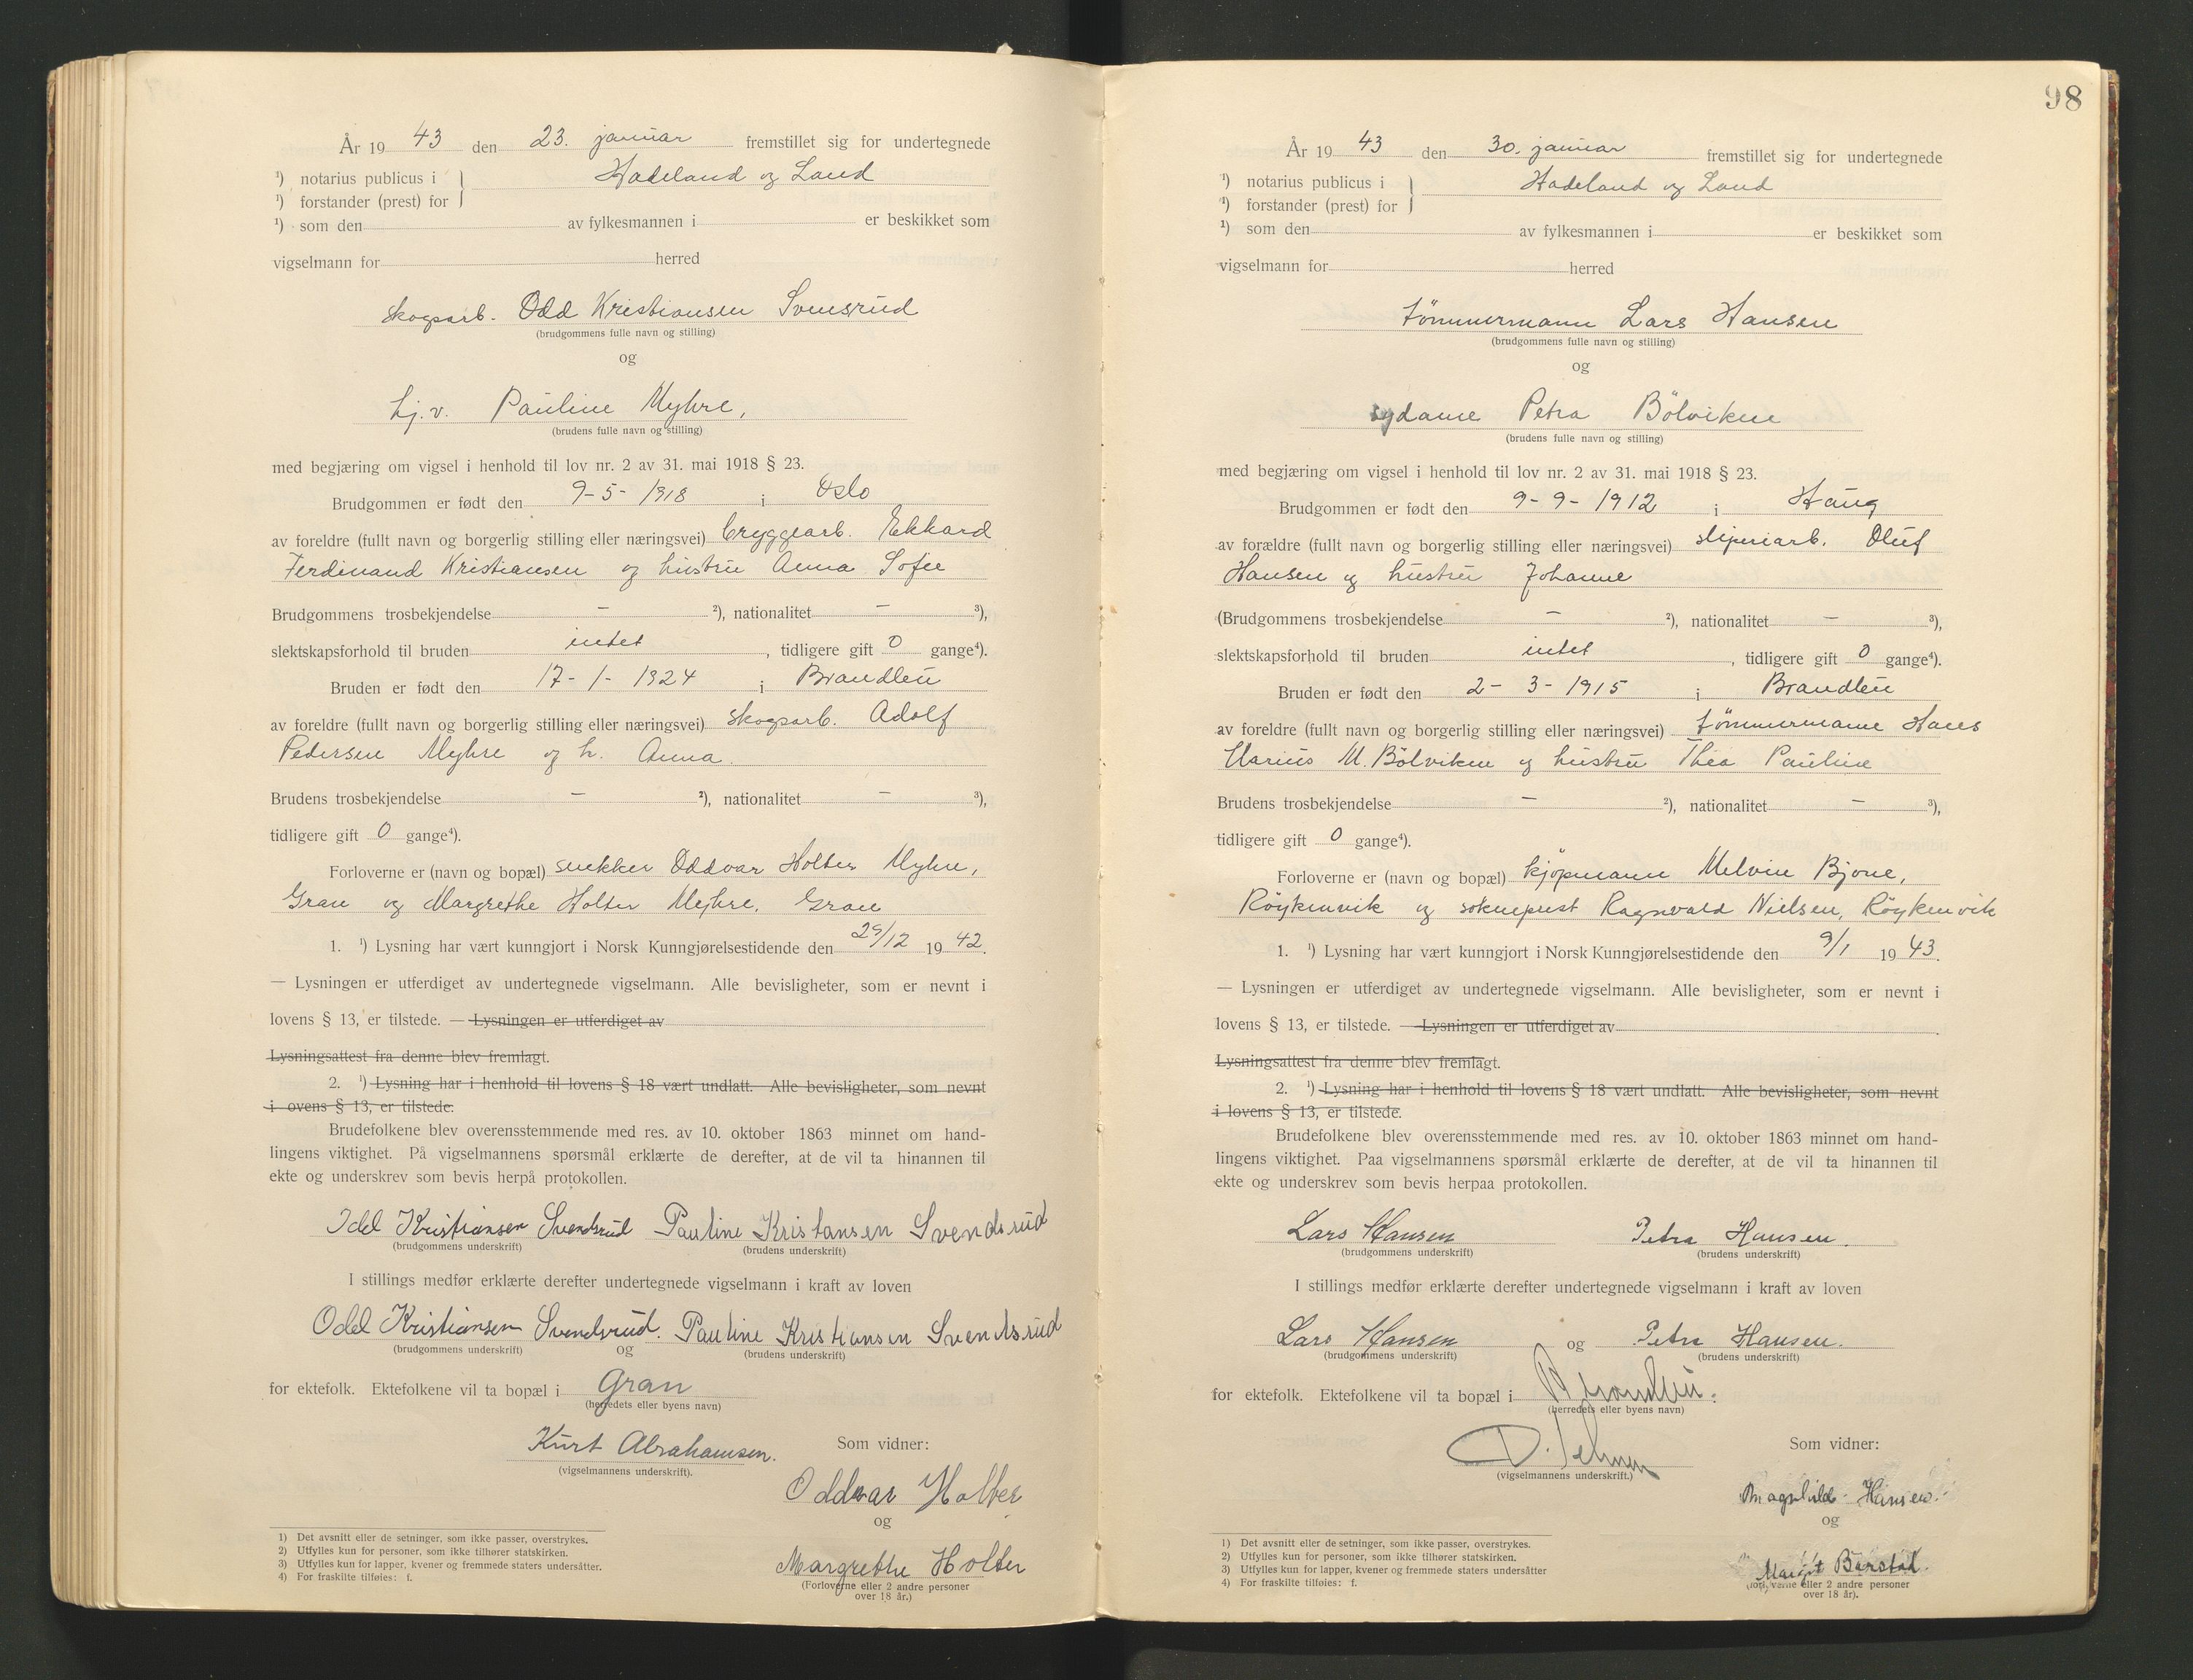 År 19 43 den 23. januar fremstillet sig for undertegnede
¹) notarius publicus i } Hadeland og Land
¹) forstander (prest) for
¹) som den av fylkesmannen i er beskikket som
vigselmann for herred
skogsarb. Odd Kristiansen Svensrud
(brudgommens fulle navn og stilling)
og
hj.v. Pauline Myhre,
(brudens fulle navn og stilling)
med begjæring om vigsel i henhold til lov nr. 2 av 31. mai 1918 § 23.
Brudgommen er født den 9-5-1918 i Oslo
av foreldre (fullt navn og borgerlig stilling eller næringsvei) bryggearb. Ekhard
Ferdinand Kristiansen og hustru Anna Sofie
Brudgommens trosbekjendelse - ²), nationalitet - ³),
slektskapsforhold til bruden intet, tidligere gift 0 gange⁴).
Bruden er født den 17-1-1924 i Brandbu
av foreldre (fullt navn og borgerlig stilling eller næringsvei) skogsarb. Adolf
Pedersen Myhre og h. Anna.
Brudens trosbekjendelse - ²), nationalitet - ³),
tidligere gift 0 gange⁴).
Forloverne er (navn og bopæl) snekker Oddvar Holter Myhre,
Gran og Margrethe Holter Myhre, Gran
1. ¹) Lysning har vært kunngjort i Norsk Kunngjørelsestidende den 29/12 19 42.
— Lysningen er utferdiget av undertegnede vigselmann. Alle bevisligheter, som er nevnt i
lovens § 13, er tilstede. — Lysningen er utferdiget av
Lysningsattest fra denne blev fremlagt.
2. ¹) Lysning har i henhold til lovens § 18 vært undlatt. Alle bevisligheter, som nevnt
i ovens § 13, er tilstede.
Brudefolkene blev overensstemmende med res. av 10. oktober 1863 minnet om hand-
lingens viktighet. På vigselmannens spørsmål erklærte de derefter, at de vil ta hinannen til
ekte og underskrev som bevis herpå protokollen.
Odd Kristiansen Svendsrud Pauline Kristansen Svendsrud
(brudgommens underskrift) (brudens underskrift)
I stillings medfør erklærte derefter undertegnede vigselmann i kraft av loven
Odd Kristiansen Svendsrud. Pauline Kristiansen Svendsrud
(brudgommens underskrift) og (brudens underskrift)
for ektefolk. Ektefolkene vil ta bopæl i Gran
(herredets eller byens navn)
Kurt Abrahamsen. Som vidner:
(vigselmannens underskrift).
Oddvar Holter
og
Margrethe Holter
(Forloverne eller 2 andre personer
over 18 år.)
1) Det avsnitt eller de setninger, som ikke passer, overstrykes.
2) Utfylles kun for personer, som ikke tilhører statskirken.
3) Utfylles kun for lapper, kvener og fremmede staters undersåtter.
4) For fraskilte tilføies: f.
98
År 19 43 den 30. januar fremstillet sig for undertegnede
¹) notarius publicus i } Hadeland og Land
¹) forstander (prest) for
¹) som den av fylkesmannen i er beskikket som
vigselmann for herred
tömmermann Lars Hansen
(brudgommens fulle navn og stilling)
og
sydame Petra Bölviken
(brudens fulle navn og stilling)
med begjæring om vigsel i henhold til lov nr. 2 av 31. mai 1918 § 23.
Brudgommen er født den 9-9-1912 i Haug
av forældre (fullt navn og borgerlig stilling eller næringsvei) sliperiarb. Oluf
Hansen og hustru Johanne
(Brudgommens trosbekjendelse - ²), nationalitet - ³),
slektskapsforhold til bruden intet, tidligere gift 0 gange⁴).
Bruden er født den 2-3-1915 i Brandbu
av foreldre (fullt navn og borgerlig stilling eller næringsvei) tömmermann Hans
Marius M. Bölviken og hustru Thea Pauline
Brudens trosbekjendelse - ²), nationalitet - ³),
tidligere gift 0 gange⁴).
Forloverne er (navn og bopæl) kjöpmann Melvin Bjone,
Röykenvik og sokneprest Ragnvald Nielsen, Röykenvik
1. ¹) Lysning har vært kunngjort i Norsk Kunngjørelsestidende den 9/1 19 43.
— Lysningen er utferdiget av undertegnede vigselmann. Alle bevisligheter, som er nevnt i
lovens § 13, er tilstede. — Lysningen er utferdiget av
Lysningsattest fra denne blev fremlagt.
2. ¹) Lysning har i henhold til lovens § 18 vært undlatt. Alle bevisligheter, som nevnt
i lovens § 13, er tilstede.
Brudefolkene blev overensstemmende med res. av 10. oktober 1863 minnet om hand-
lingens viktighet. Paa vigselmannens spørsmål erklærte de derefter, at de vil ta hinannen til
ekte og underskrev som bevis herpaa protokollen.
Lars Hansen Petra Hansen.
(brudgommens underskrift) (brudens underskrift)
I stillings medfør erklærte derefter undertegnede vigselmann i kraft av loven
Lars Hansen og Petra Hansen.
(brudgommens underskrift) (brudens underskrift)
for ektefolk. Ektefolkene vil ta bopæl i Brandbu.
(herredets eller byens navn)
Som vidner:
(vigselmannens underskrift.)
Magnhild Hansen.
og
Margit Barstad.
(Forloverne eller 2 andre personer
over 18 år).
1) Det avsnitt eller de setninger, som ikke passer, overstrykes.
2) Utfylles kun for personer, som ikke tilhører statskirken.
3) Utfylles kun for lapper, kvener og fremmede staters undersåtter
4) For fraskilte tilføies: f.